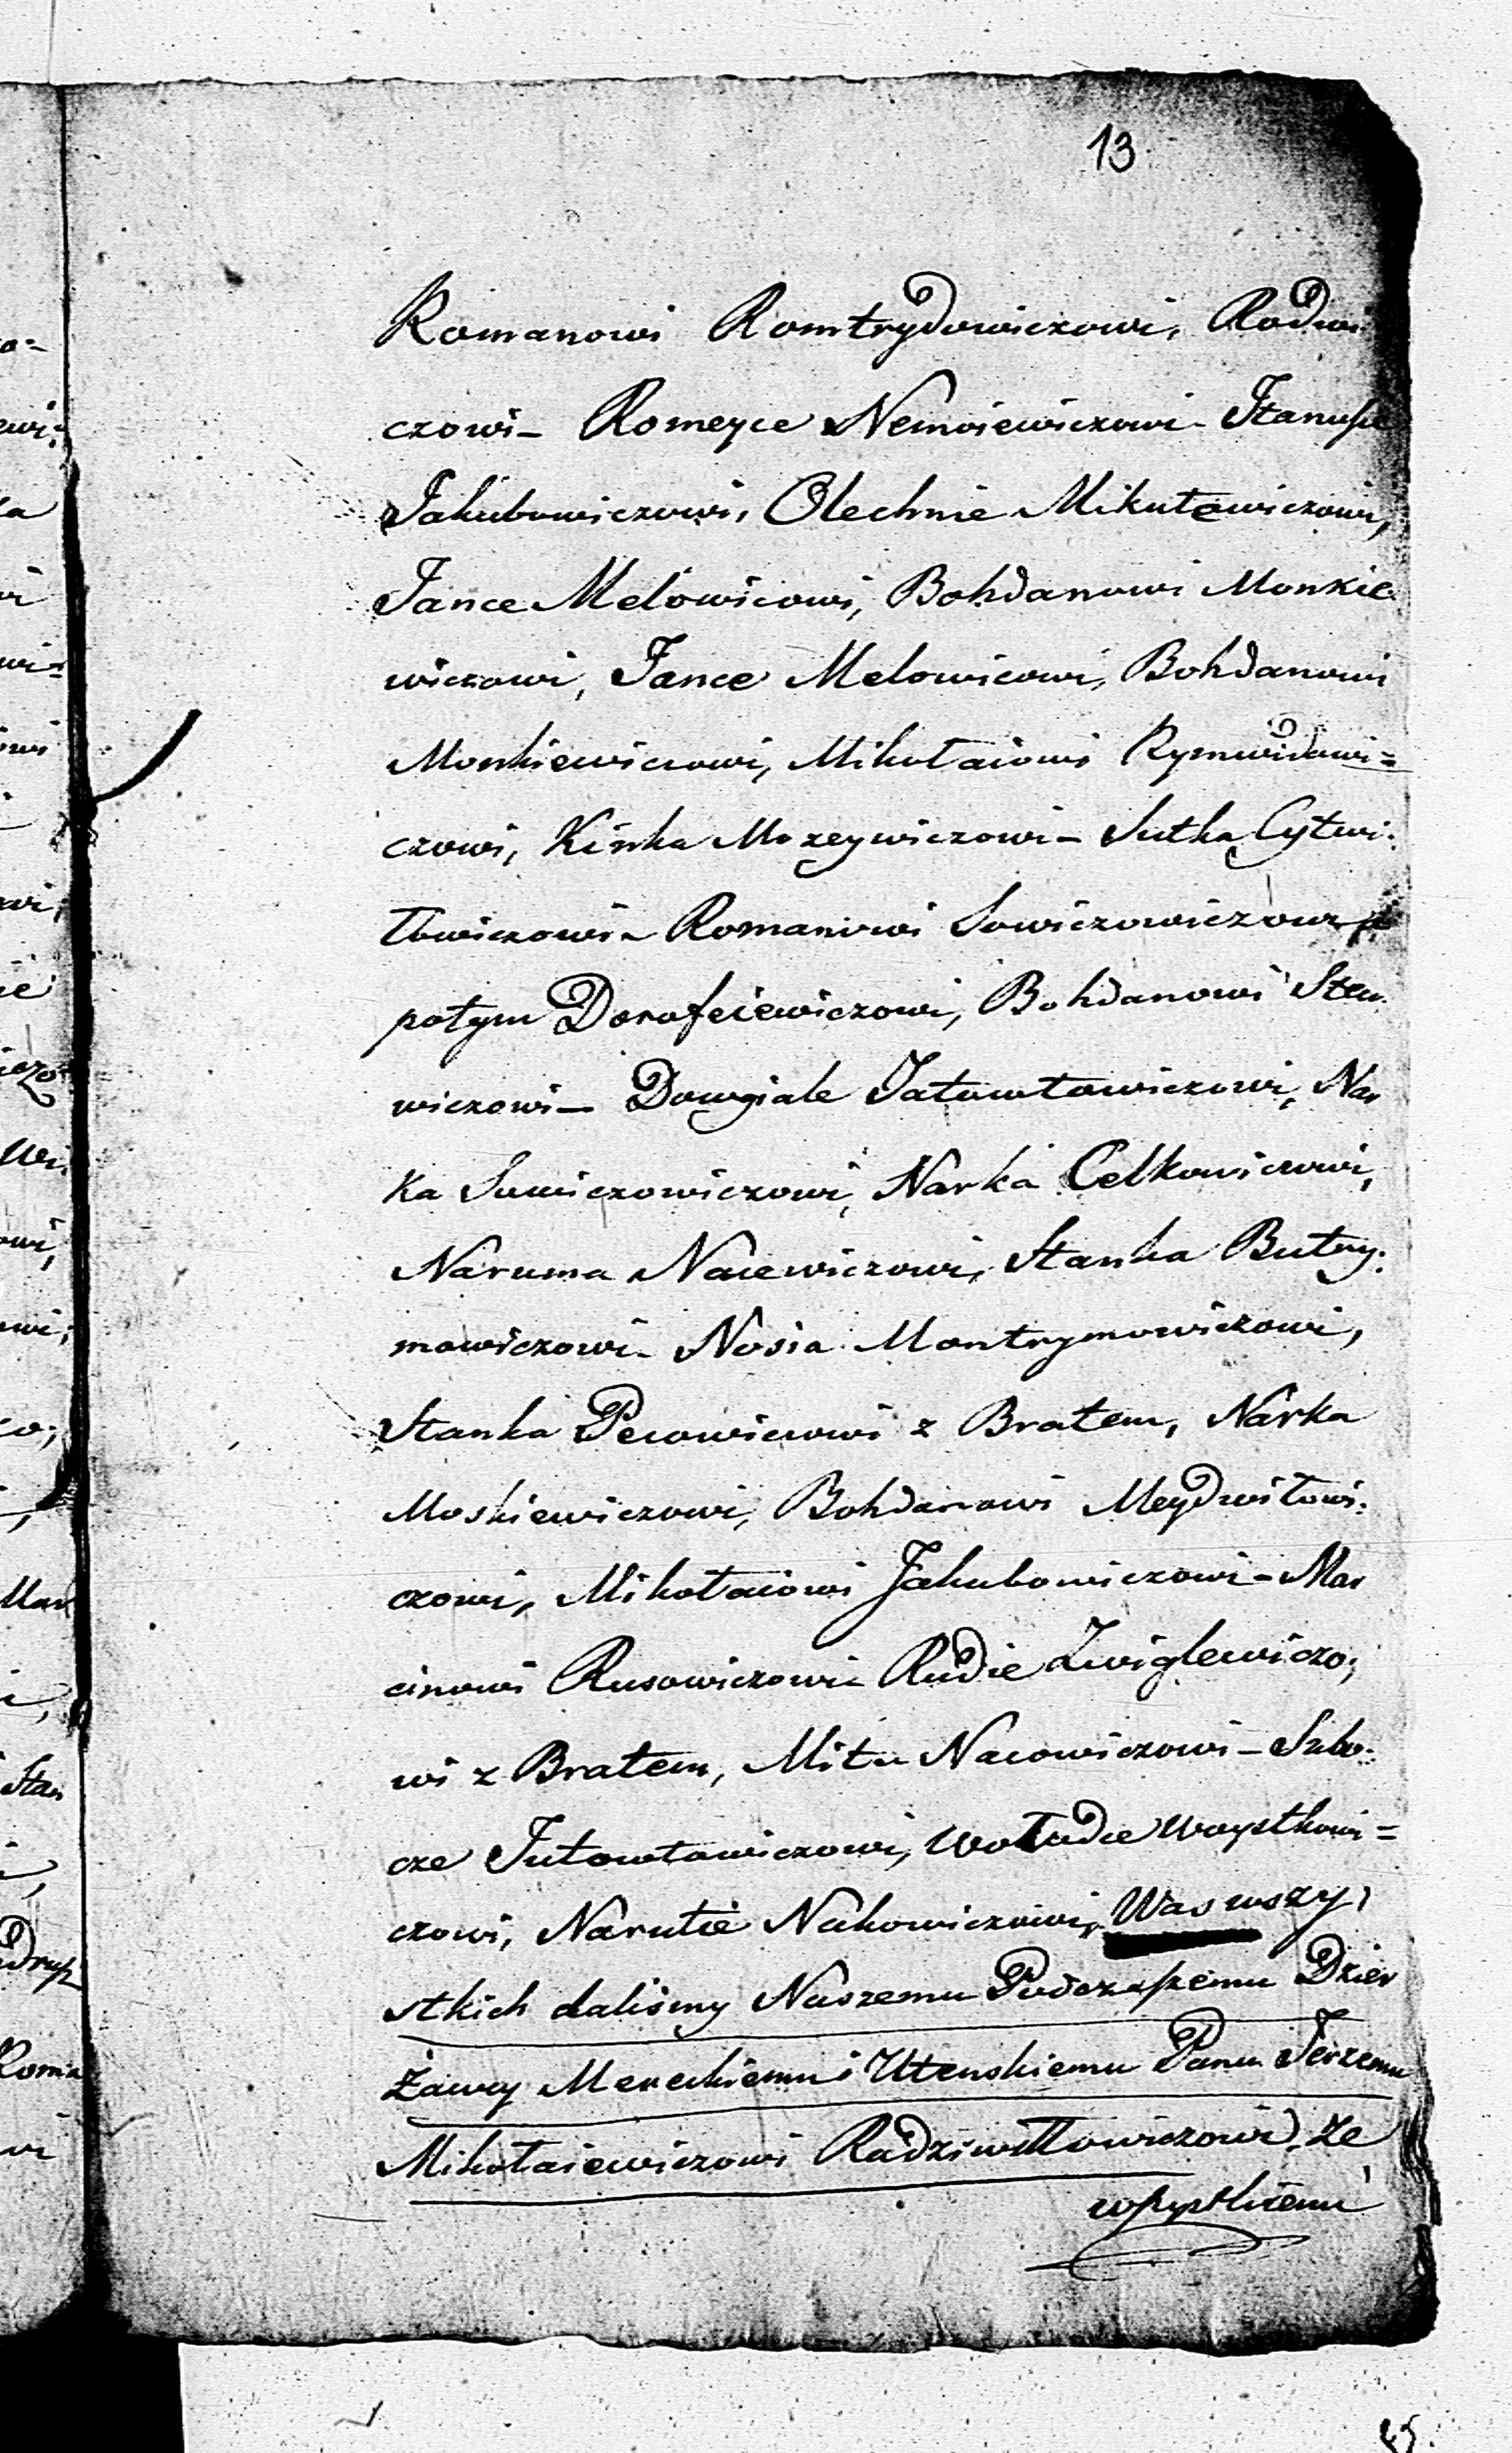 13
Romanowi Romtrydowiczowi, Radwi
czowi – Romeyce Nemoiewiczowi – Stanuße
Jakubowiczowi, Olechnie Mikutowiczowi,
Jance Melowiczowi, Bohdanowi Monkie
wiczowi, Jance Melowiczowi, Bohdanowi
Monkiewiczowi, Mikołaiowi Rymwidowi=
czowi, Kinka Mozeywiczowi – Sutka Cytwi:
łłowiczowi – Romanowi Sowiczowiczowi
potym Dorofeiewiczowi, Bohdanowi Stec:
wiczowi – Dowgiale Jatowtowiczowi, Nar
ka Sowiczowiczowi, Narka Celkowiczowi,
Naruma Nacewiczowi, Stanka Butry:
mowiczowi – Nosia Montrymowiczowi,
Stanka Pecowiczowi z Bratem, Narka
Moskiewiczowi, Bohdanowi Meydwiłowi:
czowi, Mikołaiowi Jakubowiczowi – Mar
cinowi Rusowiczowi – Rudie Zwiglewiczo;
wi z Bratem, Mitu Nacowiczowi – Subo:
cze Jutowtowiczowi, Wołudce Woystkowi=
czowi, Narutie Nakowiczowi, Was wszy,
stkich daliśmy Naszemu Podczaßemu Dzier
żawcy Mereckiemu i Utenskiemu Panu Jerzemu
Mikołaiewiczowi Radziwiłłowiczowi, ze
wßystkiemi